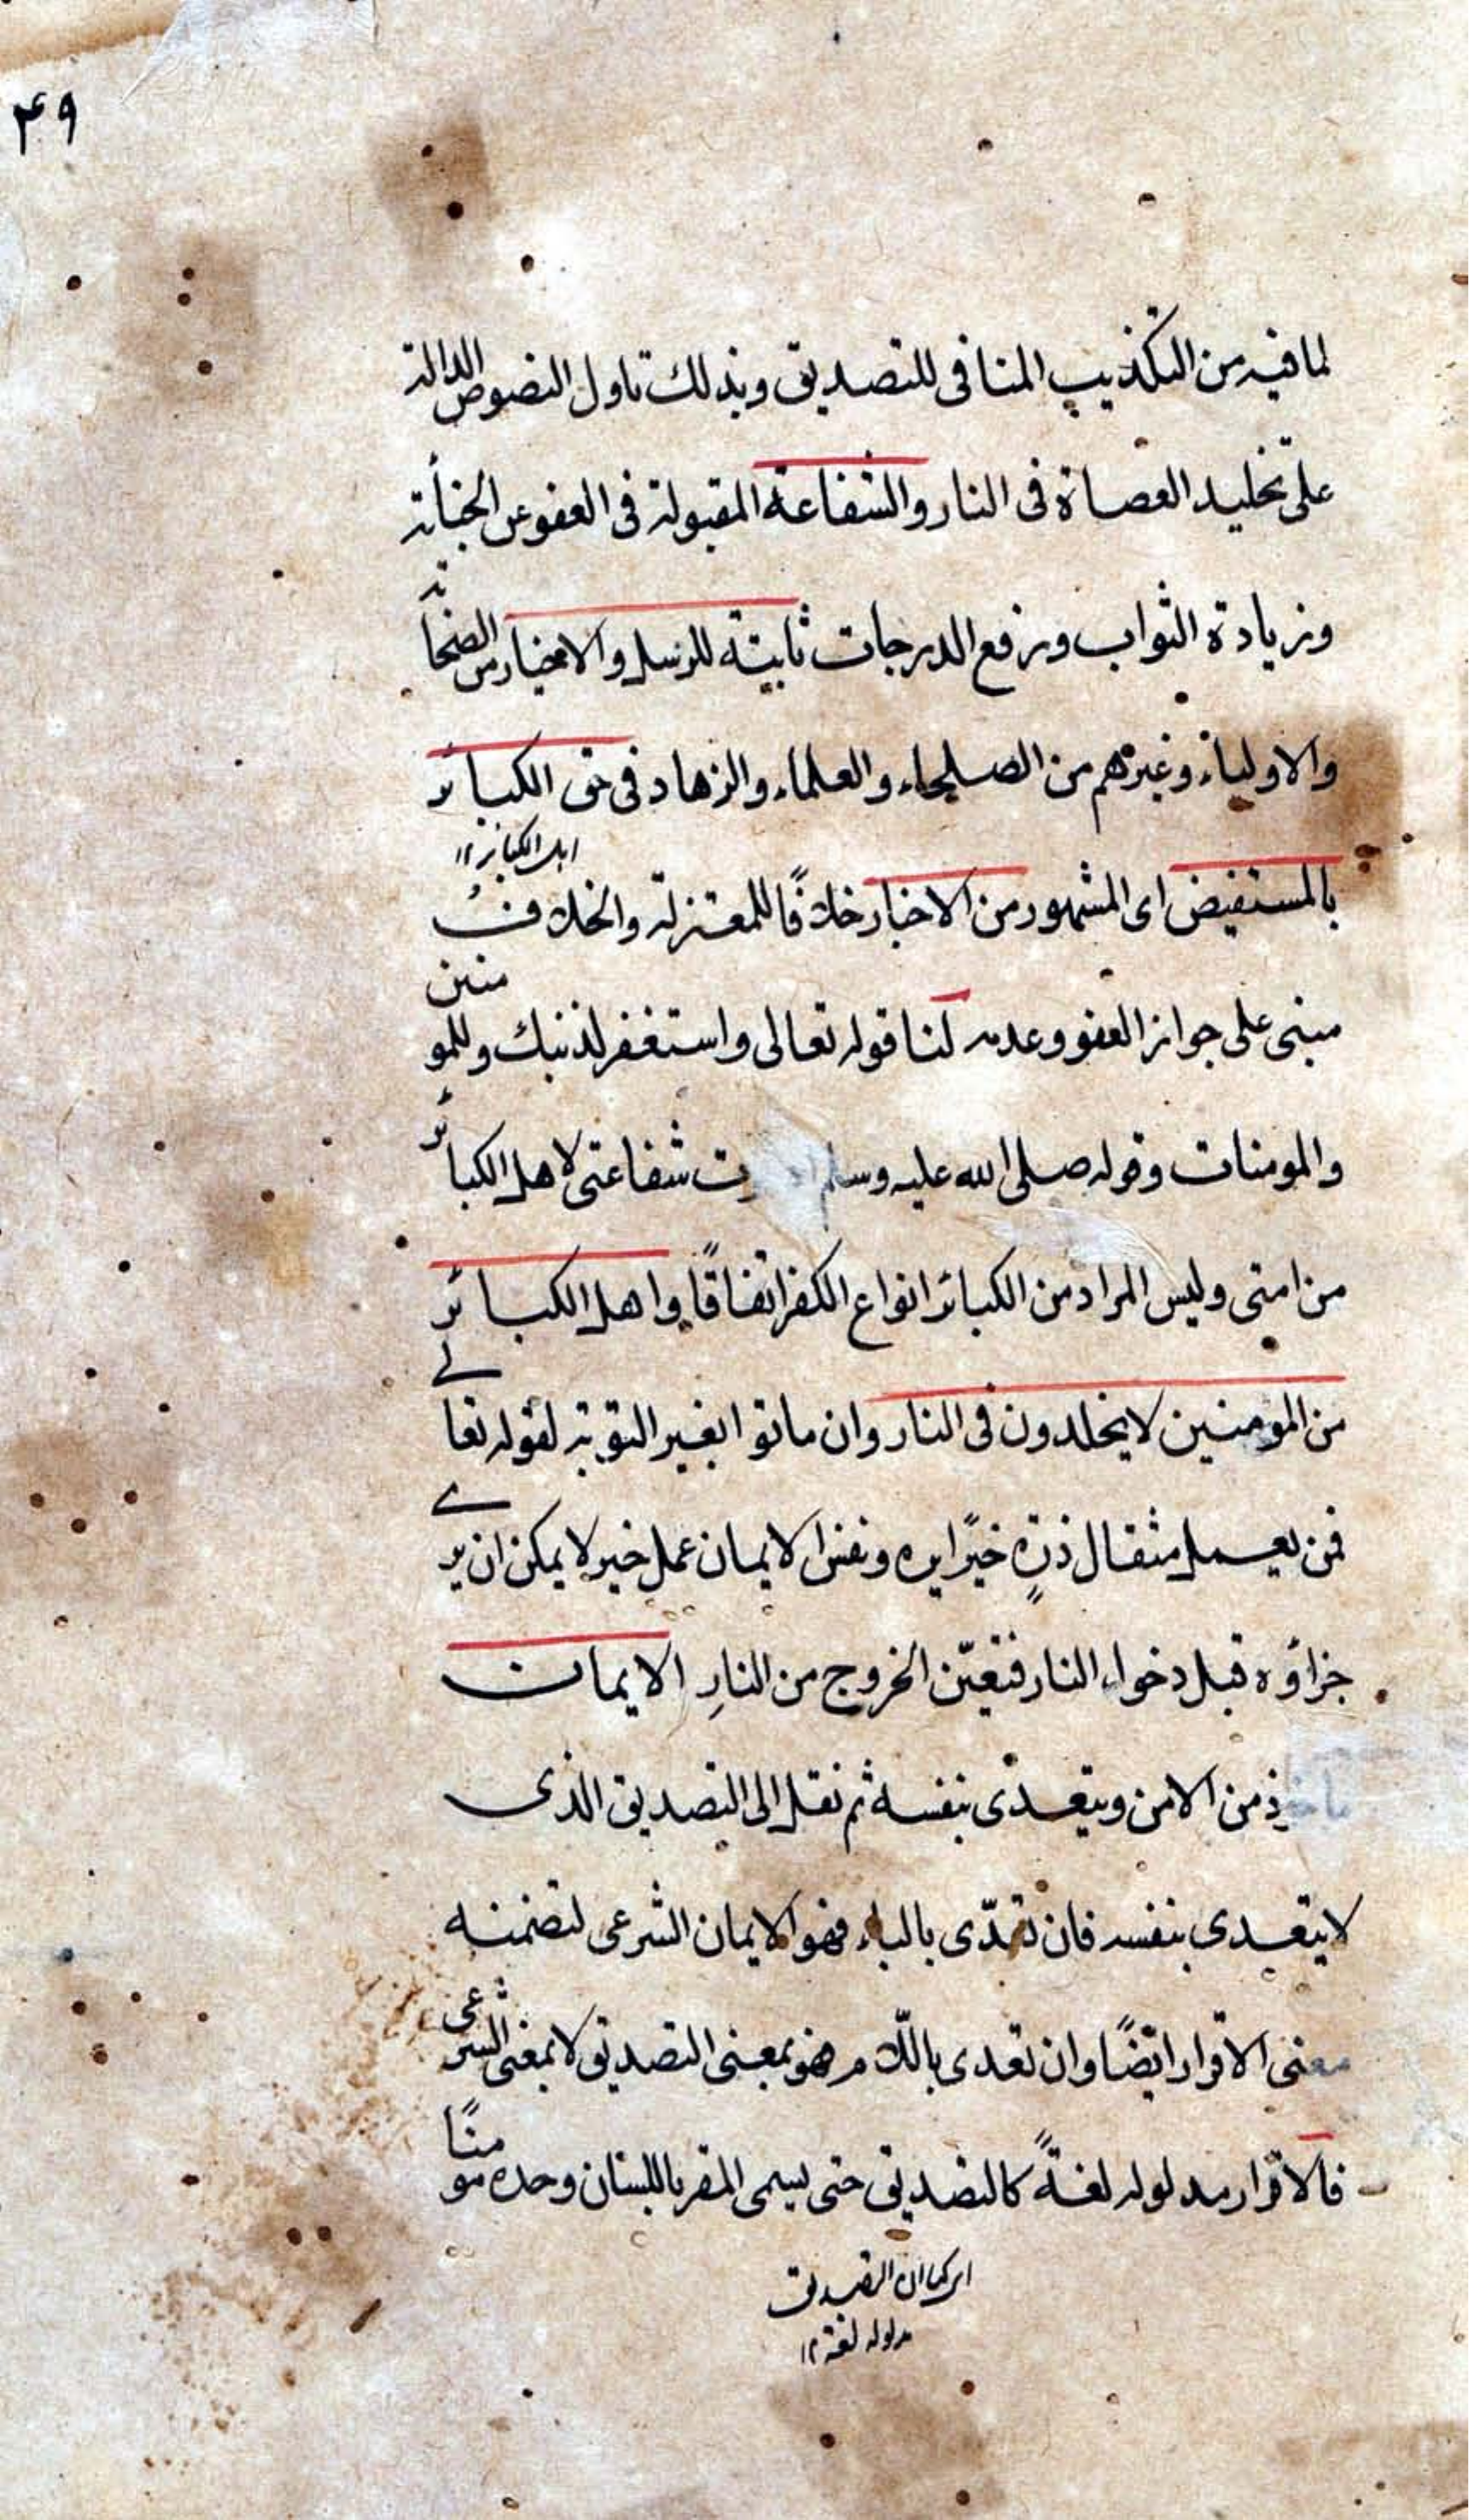 ۴۹
لما فيه من التكذيب المنافى للتصديق وبذلك تاول النصوص الدالة
على تخليد العصاة فى النار والشفاعة المقبولة فى العفو عن الجناية
وزيادة الثواب ورفع الدرجات ثابتة للرسل والاخيار من الصحابة
والاولياء وغيرهم من الصلحاء والعلماء والزهاد فى حق الكبائر
اهل الكبائر ۱۲
بالمستفيض اى المشهور من الاخبار خلافًا للمعتزلة والخلاف
مبنى على جواز العفو وعدمه لنا قوله تعالى واستغفر لذنبك وللمومنين
والمومنات وقوله صلى الله عليه وسلم شفاعتى لاهل الكبائر
من امتى وليس المراد من الكبائر انواع الكفر اتفاقًا واهل الكبائر
من المومنين لا يخلدون فى النار وان ماتوا بغير التوبة لقوله تعالے
فمن يعمل مثقال ذرةٍ خيرًا يره ونفس الايمان عمل خير لا يمكن ان يرے
جزاؤه قبل دخول النار فتعيّن الخروج من النارِ الايمان
ماخوذ من الامن ويتعدى بنفسه ثم نقل الى التصديق الذى
لا يتعدى بنفسه فان تعدّى بالباء فهو الايمان الشرعى لتضمنه
معنى الاقرار ايضًا وان تعدى باللّام فهو بمعنى التصديق لا بمعنى الشرعى
فالاقرار مدلوله لغةً كالتصديق حتى يسمى المقر باللسان وحده مومنًا
اى كما ان التصديق
مدلوله لغة ۱۲